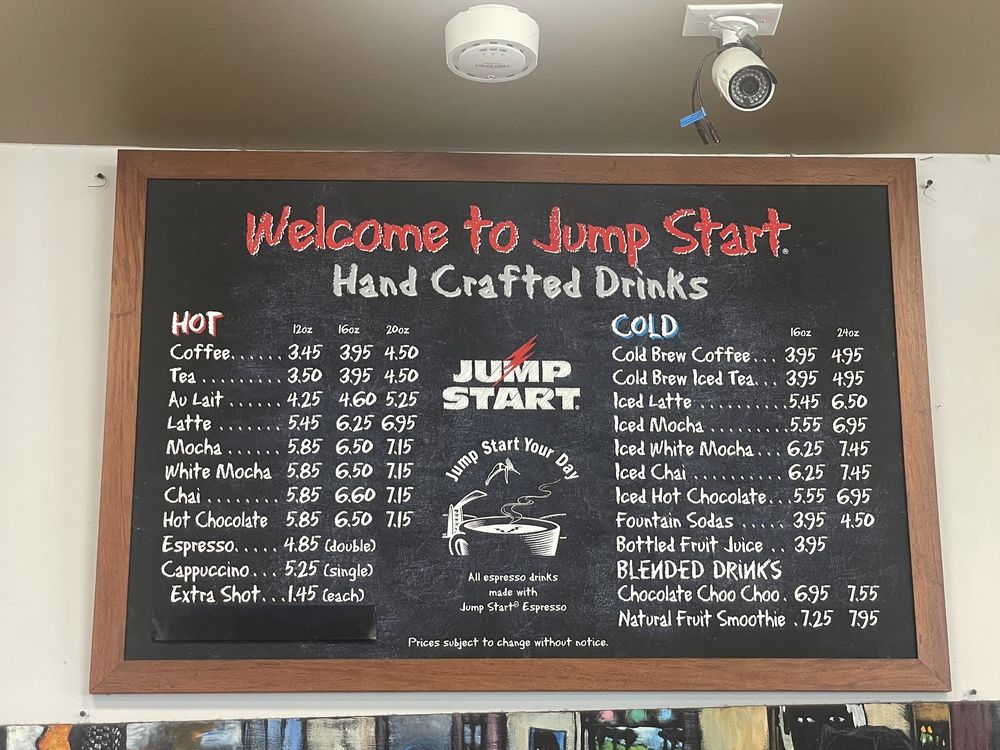 Welcome to Jump Start®
Hand Crafted Drinks
HOT 12oz 16oz 20oz
Coffee...... 3.45 3.95 4.50
Tea ......... 3.50 3.95 4.50
Au Lait ...... 4.25 4.60 5.25
Latte ....... 5.45 6.25 6.95
Mocha ...... 5.85 6.50 7.15
White Mocha 5.85 6.50 7.15
Chai ........ 5.85 6.60 7.15
Hot Chocolate 5.85 6.50 7.15
Espresso..... 4.85 (double)
Cappuccino... 5.25 (single)
Extra Shot...1.45 (each)
JUMP
START®
Jump Start Your Day
All espresso drinks
made with
Jump Start® Espresso
COLD 16oz 24oz
Cold Brew Coffee... 3.95 4.95
Cold Brew Iced Tea... 3.95 4.95
Iced Latte .......... 5.45 6.50
Iced Mocha ......... 5.55 6.95
Iced White Mocha... 6.25 7.45
Iced Chai .......... 6.25 7.45
Iced Hot Chocolate... 5.55 6.95
Fountain Sodas ..... 3.95 4.50
Bottled Fruit Juice .. 3.95
BLENDED DRINKS
Chocolate Choo Choo. 6.95 7.55
Natural Fruit Smoothie .7.25 7.95
Prices subject to change without notice.